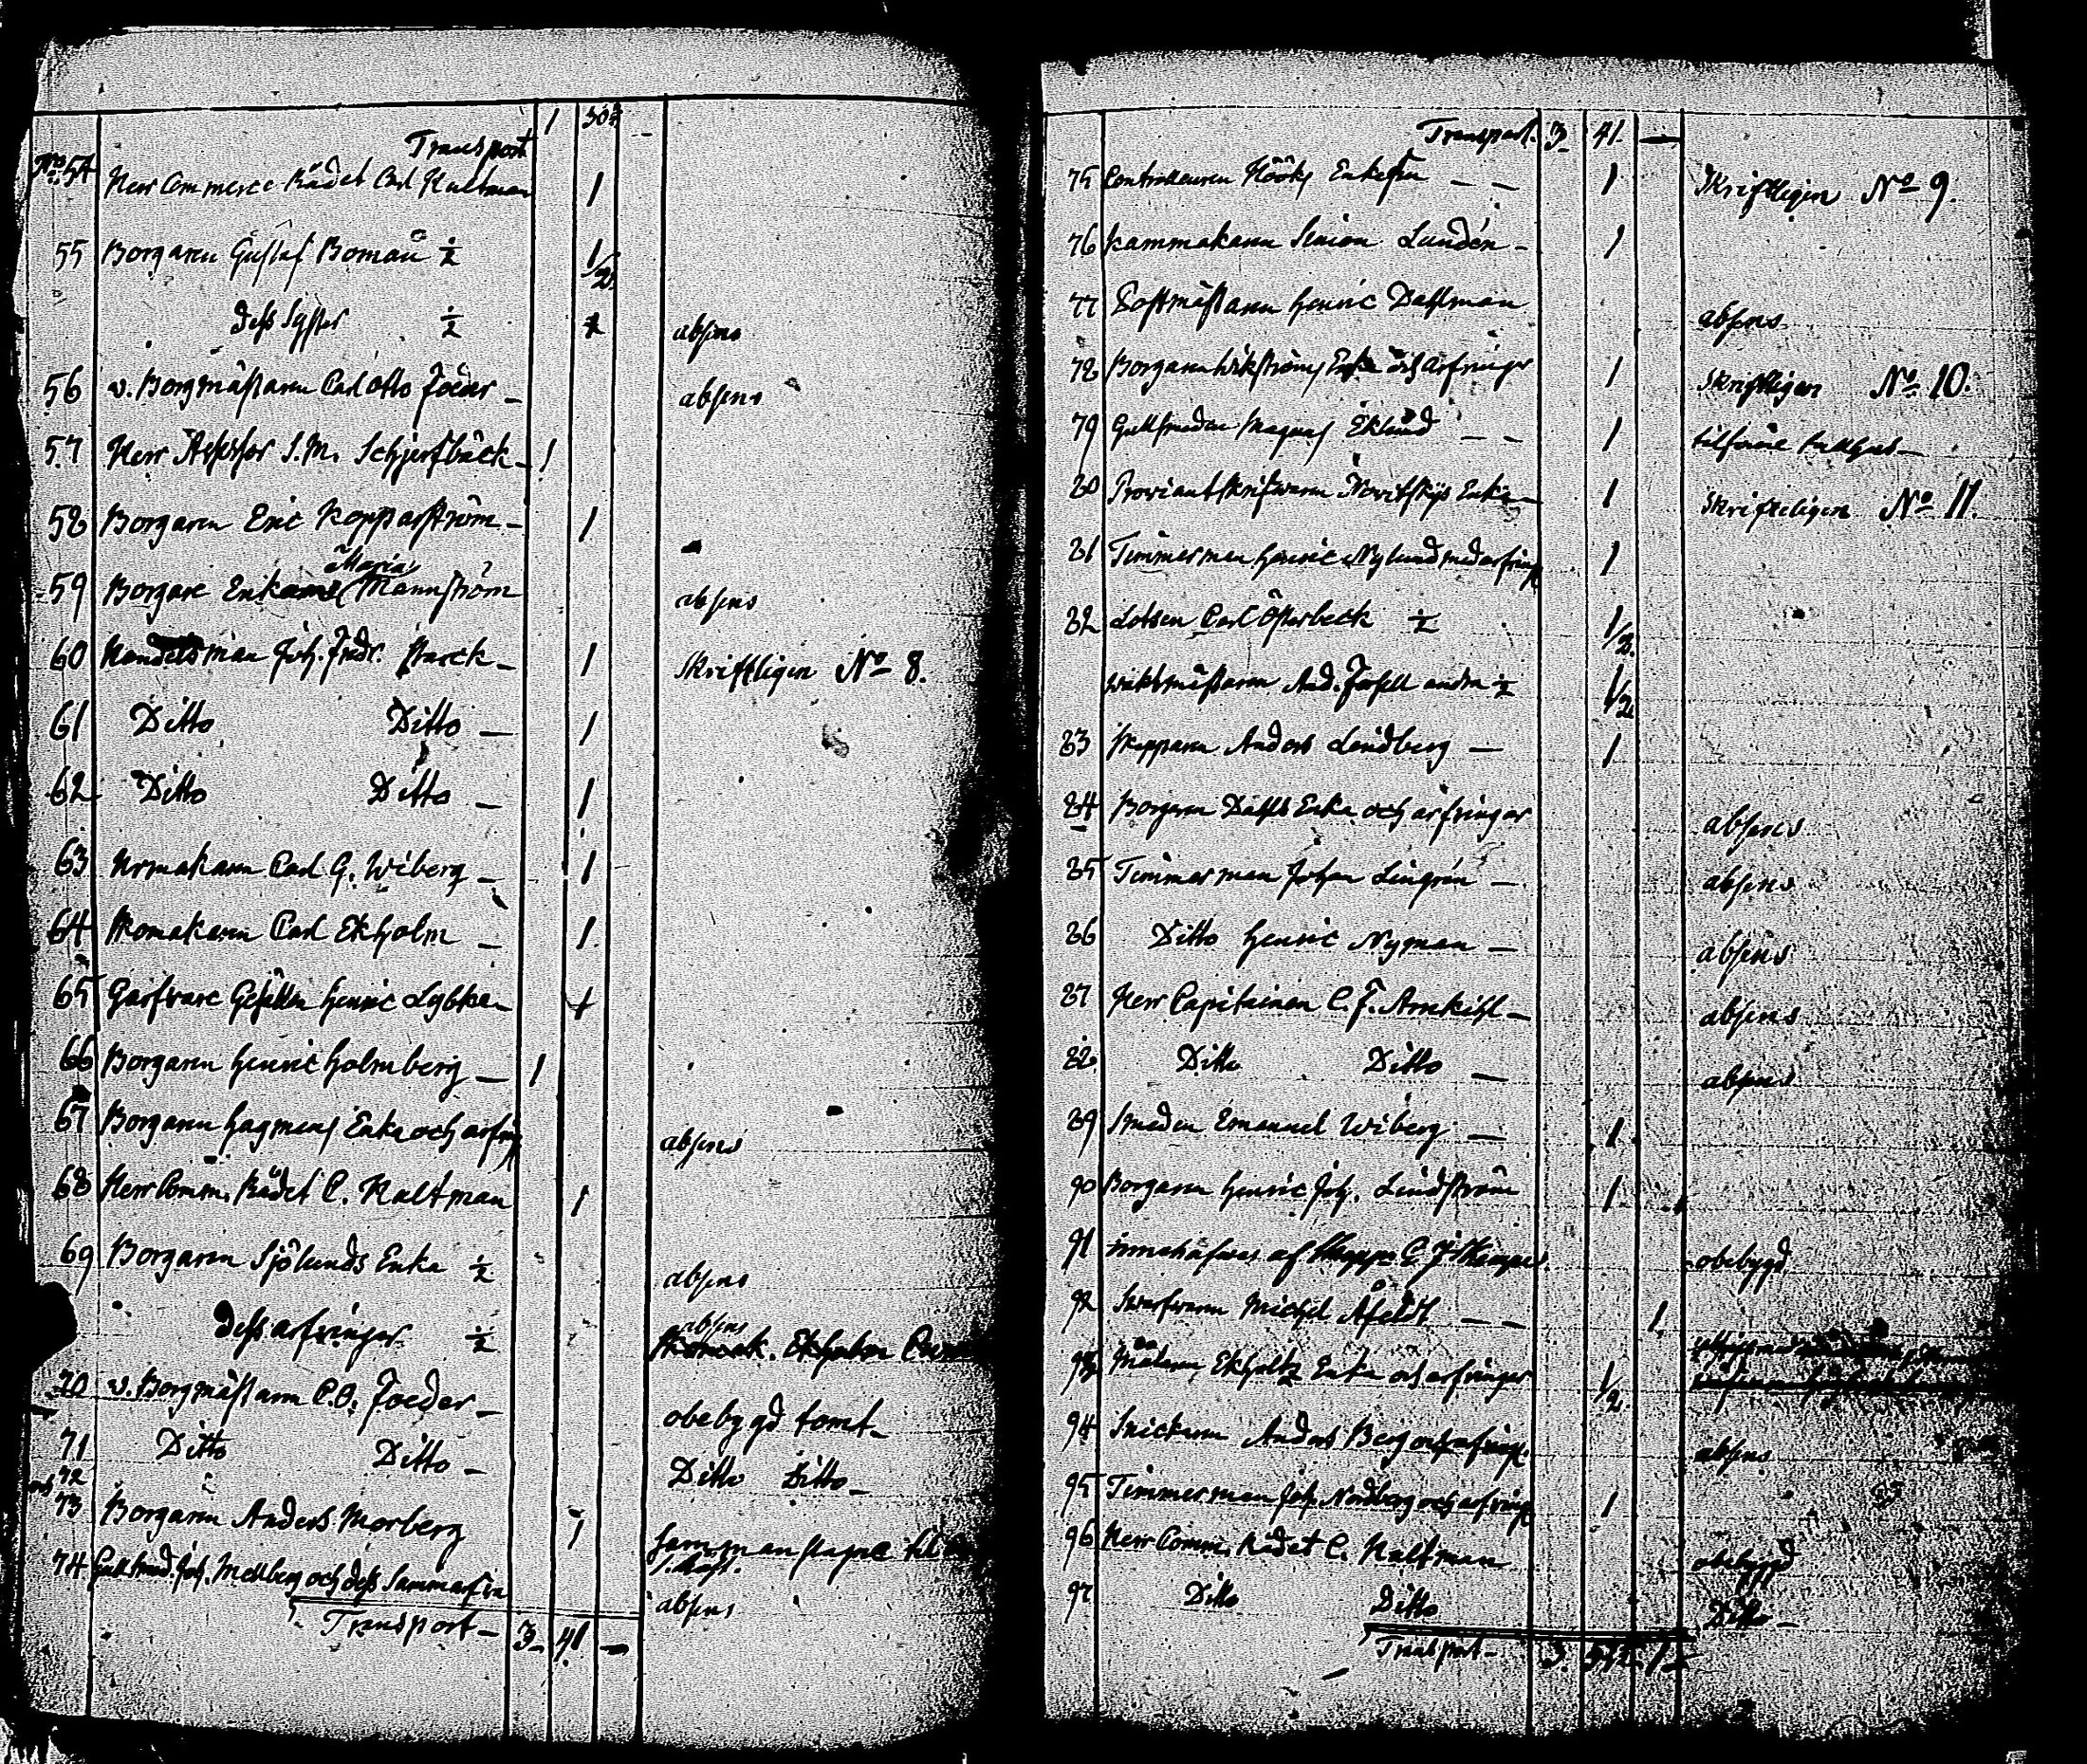 Transport 1 30½ -
No 54 Herr Commerce Rådet Carl Kaltman 1
55 Borgaren Gustaf Boman ½ 1/2
dess Syster ½ absens
56 v. Borgmästaren Carl Otto Foeder - absens
57 Herr Assessor S. M. Schjerfbäck - 1
58 Borgaren Eric Kopparström - 1
Maria
59 Borgare Enkan Mannström absens
60 Handelsman Joh. Fredr. Starck - 1 Skriftligen No 8.
61 Ditto Ditto - 1
62 Ditto Ditto - 1
63 Urmakaren Carl G. Wiberg - 1
64 Skomakaren Carl Ekholm - 1
65 Garfvare Gesällen Henric 1
66 Borgaren Henric Holmberg - 1
67 Borgaren Hagmans Enka och arfving absens
68 Herr Comm. Rådet C. Kaltman 1
69 Borgaren Sjölunds Enka ½ absens
dess arfvingar ½ absens
70 v. Borgmästaren C. O. Foeder - obebygd tomt -
71 Ditto Ditto - Ditto Ditto -
och 72
73 Borgaren Anders Morberg 1
74 Gullsmed. Joh. Mellberg och dess absens
Transport - 3 - 41 -
Transport. 3 - 41. -
75 Controlleuren Höök's Enkefru - - 1 Skriftligen No 9.
76 Kammakaren Simon Lundén - 1
77 Postmästaren Henric Dahlman absens
78 Borgaren Wikströms Enka och arfvingar 1 Skriftligen No 10.
79 Gullsmeden Magnus Eklund - - 1
80 Proviantskrifvaren Novitskys Enka - 1 Skrifteligen No 11.
81 Timmerman Henric Nylund med arfving 1
82 Lotsen Carl Österbeck ½ 1/2.
Waktmästaren And. Forsell andra ½ 1/2
83 Skepparen Anders Lindberg - 1
84 Borgaren Dahls Enka och arfvingar absens
85 Timmerman Johan Lingrén - absens
86 Ditto Henric Nyman - absens
87 Herr Capitainen C. F. Arnkihl - absens
88. Ditto Ditto - absens
89 Smeden Emanuel Wiberg - 1.
90 Borgaren Henric Joh. Lindström 1.
91 innehafves af obebygd
92 Swarfvaren Michel Åfeldt - - 1.
93 Målaren Ekholtz Enka och arfvingar 1/2.
94 Snickaren Anders Berg och arfving. absens
95 Timmerman Joh. Nordberg och arfving 1
96 Herr Comm. Rådet C. Kaltman obebygd
97 Ditto Ditto Ditto -
Transport -